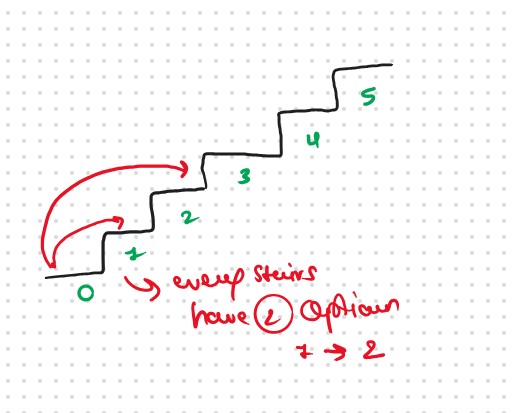 5
4
3
2
1
0
every stairs
have 2 Options
1 → 2